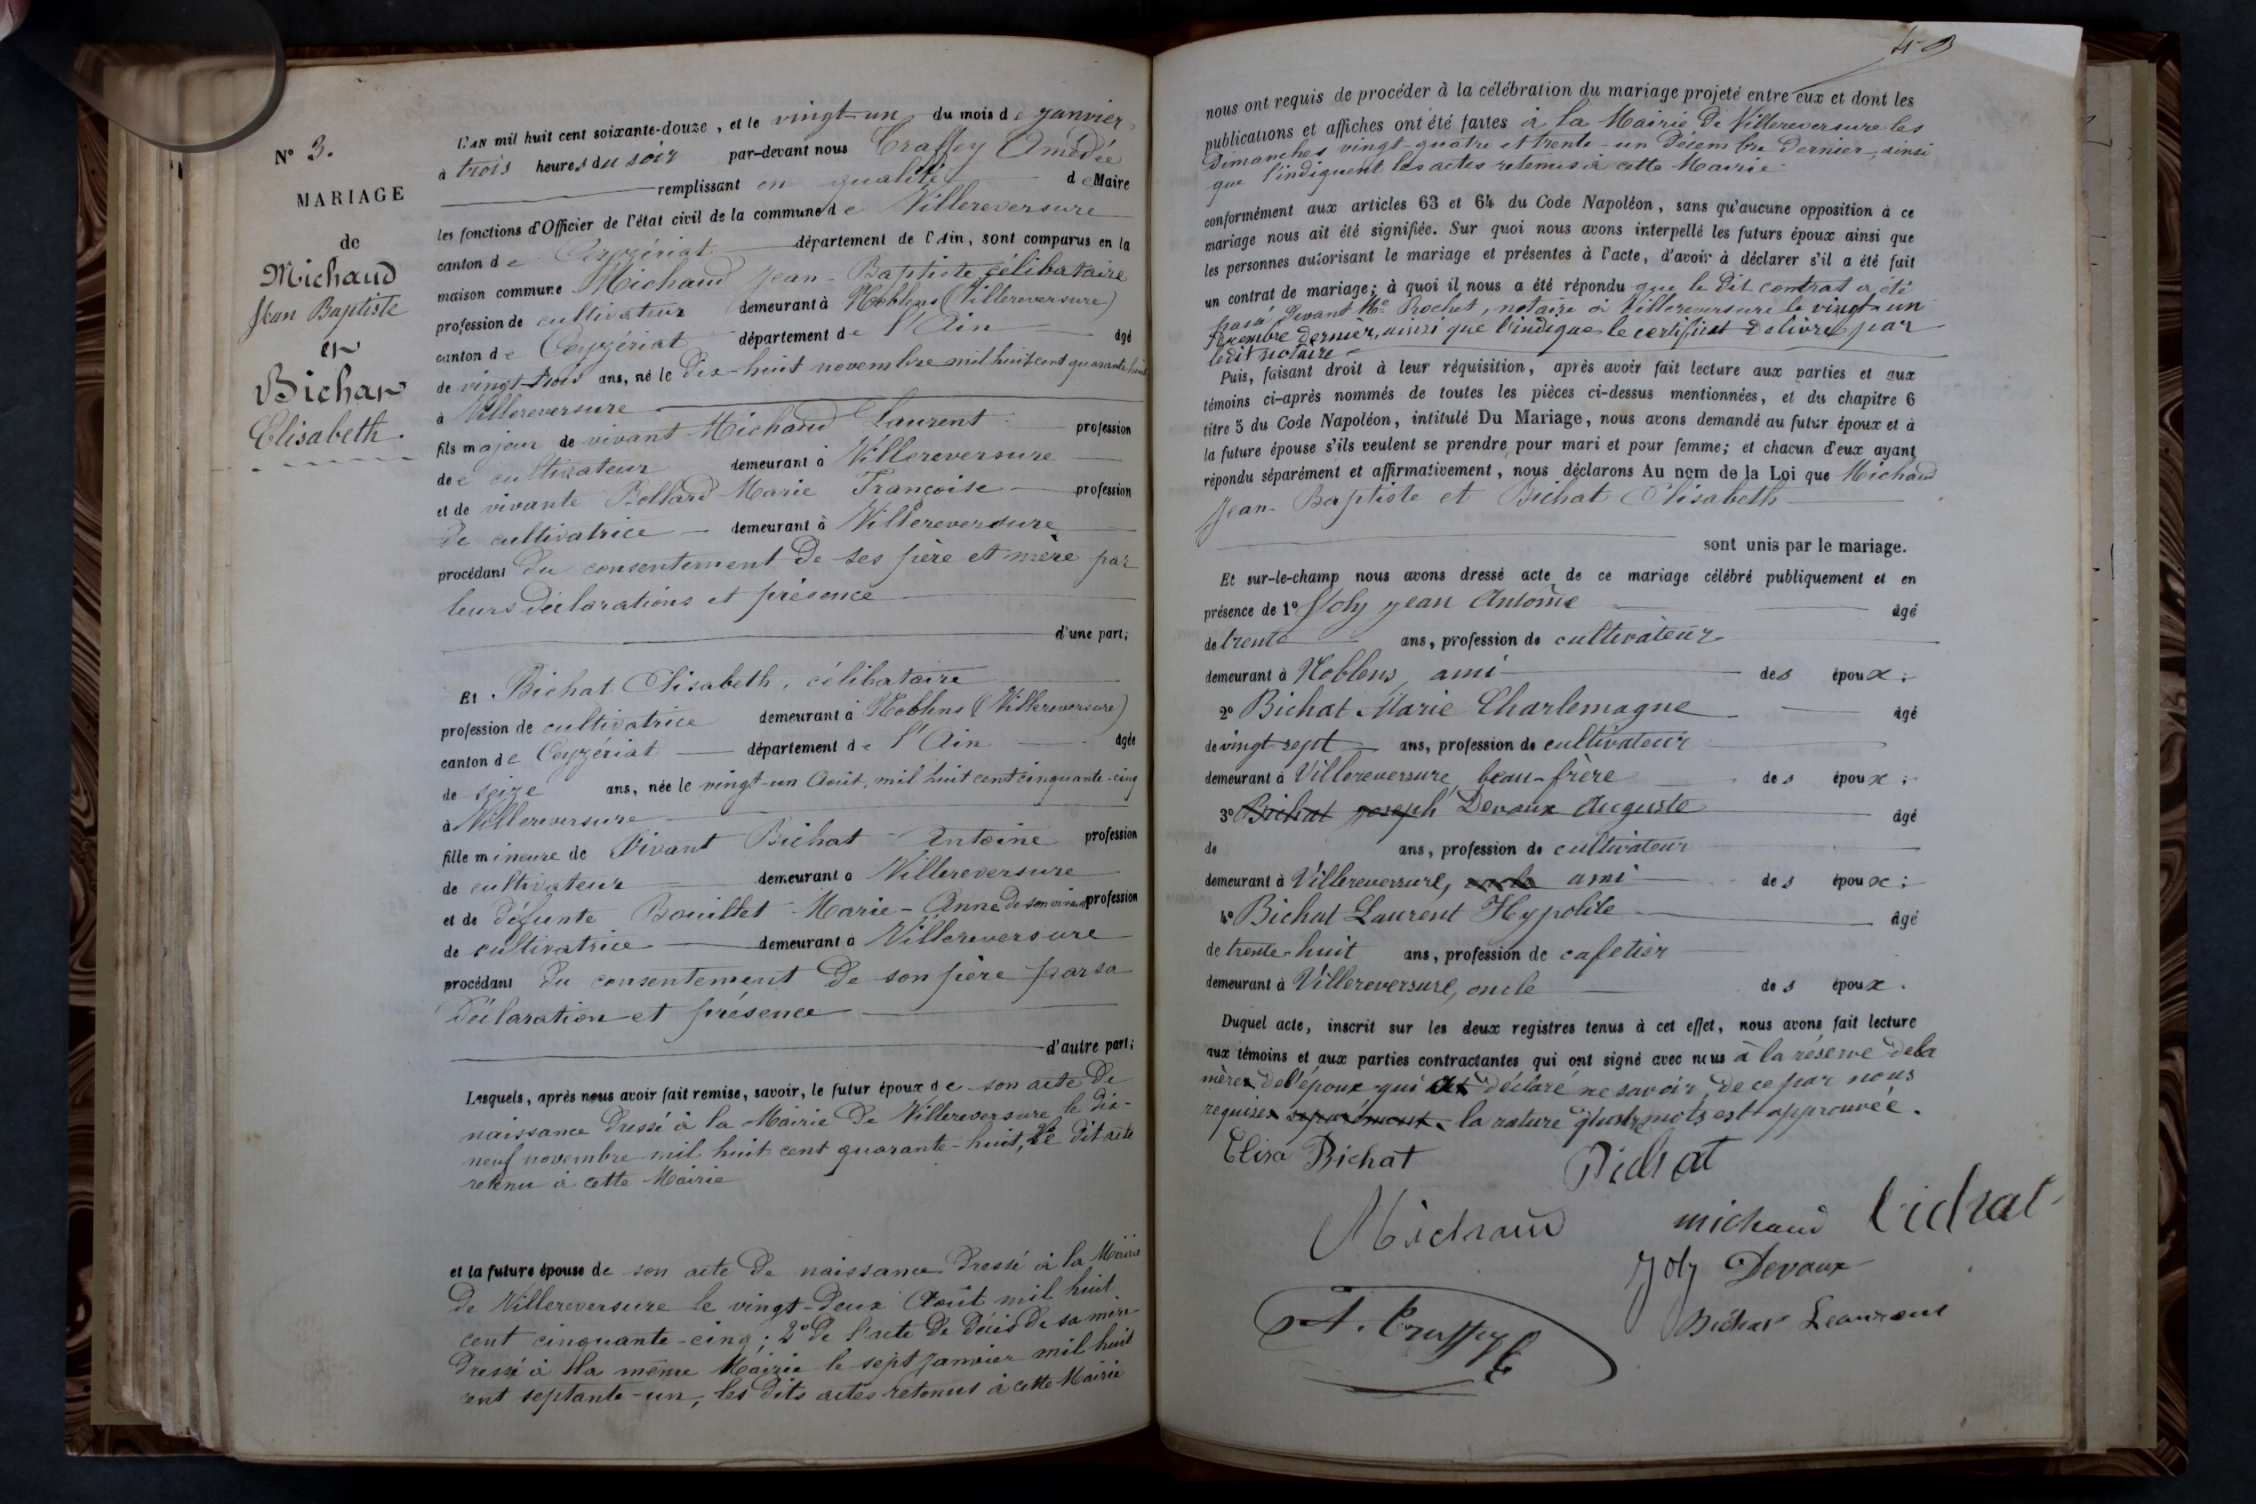 N° 3.
MARIAGE
de
Michaud
Jean Baptiste
et
Bichat
Elisabeth.
L'AN mil huit cent soixante-douze, et le vingt-un du mois de janvier,
à trois heures du soir par-devant nous Traffey Amédée
remplissant en qualité de Maire
les fonctions d'Officier de l'état civil de la commune de Villereversure
canton de Ceyzériat département de l'Ain, sont comparus en la
maison commune Michaud Jean-Baptiste célibataire
profession de cultivateur demeurant à Noblens (Villereversure)
canton de Ceyzériat département de l'Ain âgé
de vingt-trois ans, né le dix-huit novembre mil huit cent quarante-huit
à Villereversure
fils majeur de vivant Michaud Laurent profession
de cultivateur demeurant à Villereversure
et de vivante Bollard Marie Françoise profession
de cultivatrice demeurant à Villereversure
procédant du consentement de ses père et mère par
leurs déclarations et présence
d'une part;
Et Bichat Elisabeth, célibataire
profession de cultivatrice demeurant à Noblens (Villereversure)
canton de Ceyzériat département de l'Ain âgée
de seize ans, née le vingt-un Août mil huit cent cinquante-cinq
à Villereversure
fille mineure de Vivant Bichat Antoine profession
de cultivateur demeurant à Villereversure
et de défunte Bouillet Marie-Anne de son vivant profession
de cultivatrice demeurant à Villereversure
procédant du consentement de son père par sa
déclaration et présence
d'autre part;
Lesquels, après nous avoir fait remise, savoir, le futur époux de son acte de
naissance dressé à la Mairie de Villereversure le dix-
neuf novembre mil huit cent quarante-huit, le dit acte
retenu à cette Mairie
et la future épouse de son acte de naissance dressé à la Mairie
de Villereversure le vingt-deux Août mil huit
cent cinquante-cinq; 2° de l'acte de décès de sa mère
dressé à la même Mairie le sept janvier mil huit
cent septante-un, les dits actes retenus à cette Mairie
nous ont requis de procéder à la célébration du mariage projeté entre eux et dont les
publications et affiches ont été faites à la Mairie de Villereversure les
Dimanches vingt-quatre et trente-un Décembre dernier, ainsi
que l'indiquent les actes retenus à cette Mairie
conformément aux articles 63 et 64 du Code Napoléon, sans qu'aucune opposition à ce
mariage nous ait été signifiée. Sur quoi nous avons interpellé les futurs époux ainsi que
les personnes autorisant le mariage et présentes à l'acte, d'avoir à déclarer s'il a été fait
un contrat de mariage; à quoi il nous a été répondu que le dit contrat a été
passé devant Me Rochet, notaire à Villereversure le vingt-un
Décembre dernier, ainsi que l'indique le certificat délivré par
ledit notaire
Puis, faisant droit à leur réquisition, après avoir fait lecture aux parties et aux
témoins ci-après nommés de toutes les pièces ci-dessus mentionnées, et du chapitre 6
titre 5 du Code Napoléon, intitulé Du Mariage, nous avons demandé au futur époux et à
la future épouse s'ils veulent se prendre pour mari et pour femme; et chacun d'eux ayant
répondu séparément et affirmativement, nous déclarons Au nom de la Loi que Michaud
Jean-Baptiste et Bichat Elisabeth
sont unis par le mariage.
Et sur-le-champ nous avons dressé acte de ce mariage célébré publiquement et en
présence de 1° Joly Jean Antoine âgé
de trente ans, profession de cultivateur
demeurant à Noblens, ami des époux;
2° Bichat Marie Charlemagne âgé
de vingt sept ans, profession de cultivateur
demeurant à Villereversure, beau-frère des époux;
3° Bichat Joseph Devaux Auguste âgé
de ans, profession de cultivateur
demeurant à Villereversure, oncle ami des époux;
4° Bichat Laurent Hypolite âgé
de trente-huit ans, profession de cafetier
demeurant à Villereversure, oncle des époux.
Duquel acte, inscrit sur les deux registres tenus à cet effet, nous avons fait lecture
aux témoins et aux parties contractantes qui ont signé avec nous à la réserve de la
mère de l'époux qui a déclaré ne savoir, de ce par nous
requise séparément. la rature quatre mots est approuvée.
Elisa Bichat
Bichat
Michaud
michaud
bichat
Joly
Devaux
A. Traffey
Bichat Laurent